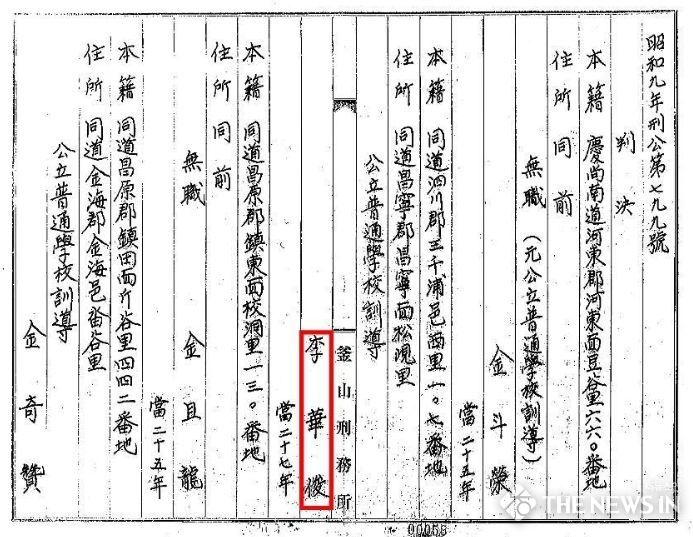 昭和九年刑公第七九九號
判決
本籍 慶尚南道河東郡河東面豆谷里六六〇番地
住所 同前
無職(元公立普通學校訓導)
金斗榮
當二十五年
本籍 同道泗川郡三千浦邑西里一〇七番地
住所 同道昌寧郡昌寧面松峴里
公立普通學校訓導
釜山刑務所
李華俊
當二十七年
本籍 同道昌原郡鎮東面校洞里一三〇番地
住所 同前
無職 金且龍
當二十五年
本籍 同道昌原郡鎮田面 谷里四四二番地
住所 同道金海郡金海邑 谷里
公立普通學校訓導
金奇贊
THE NEWS IN